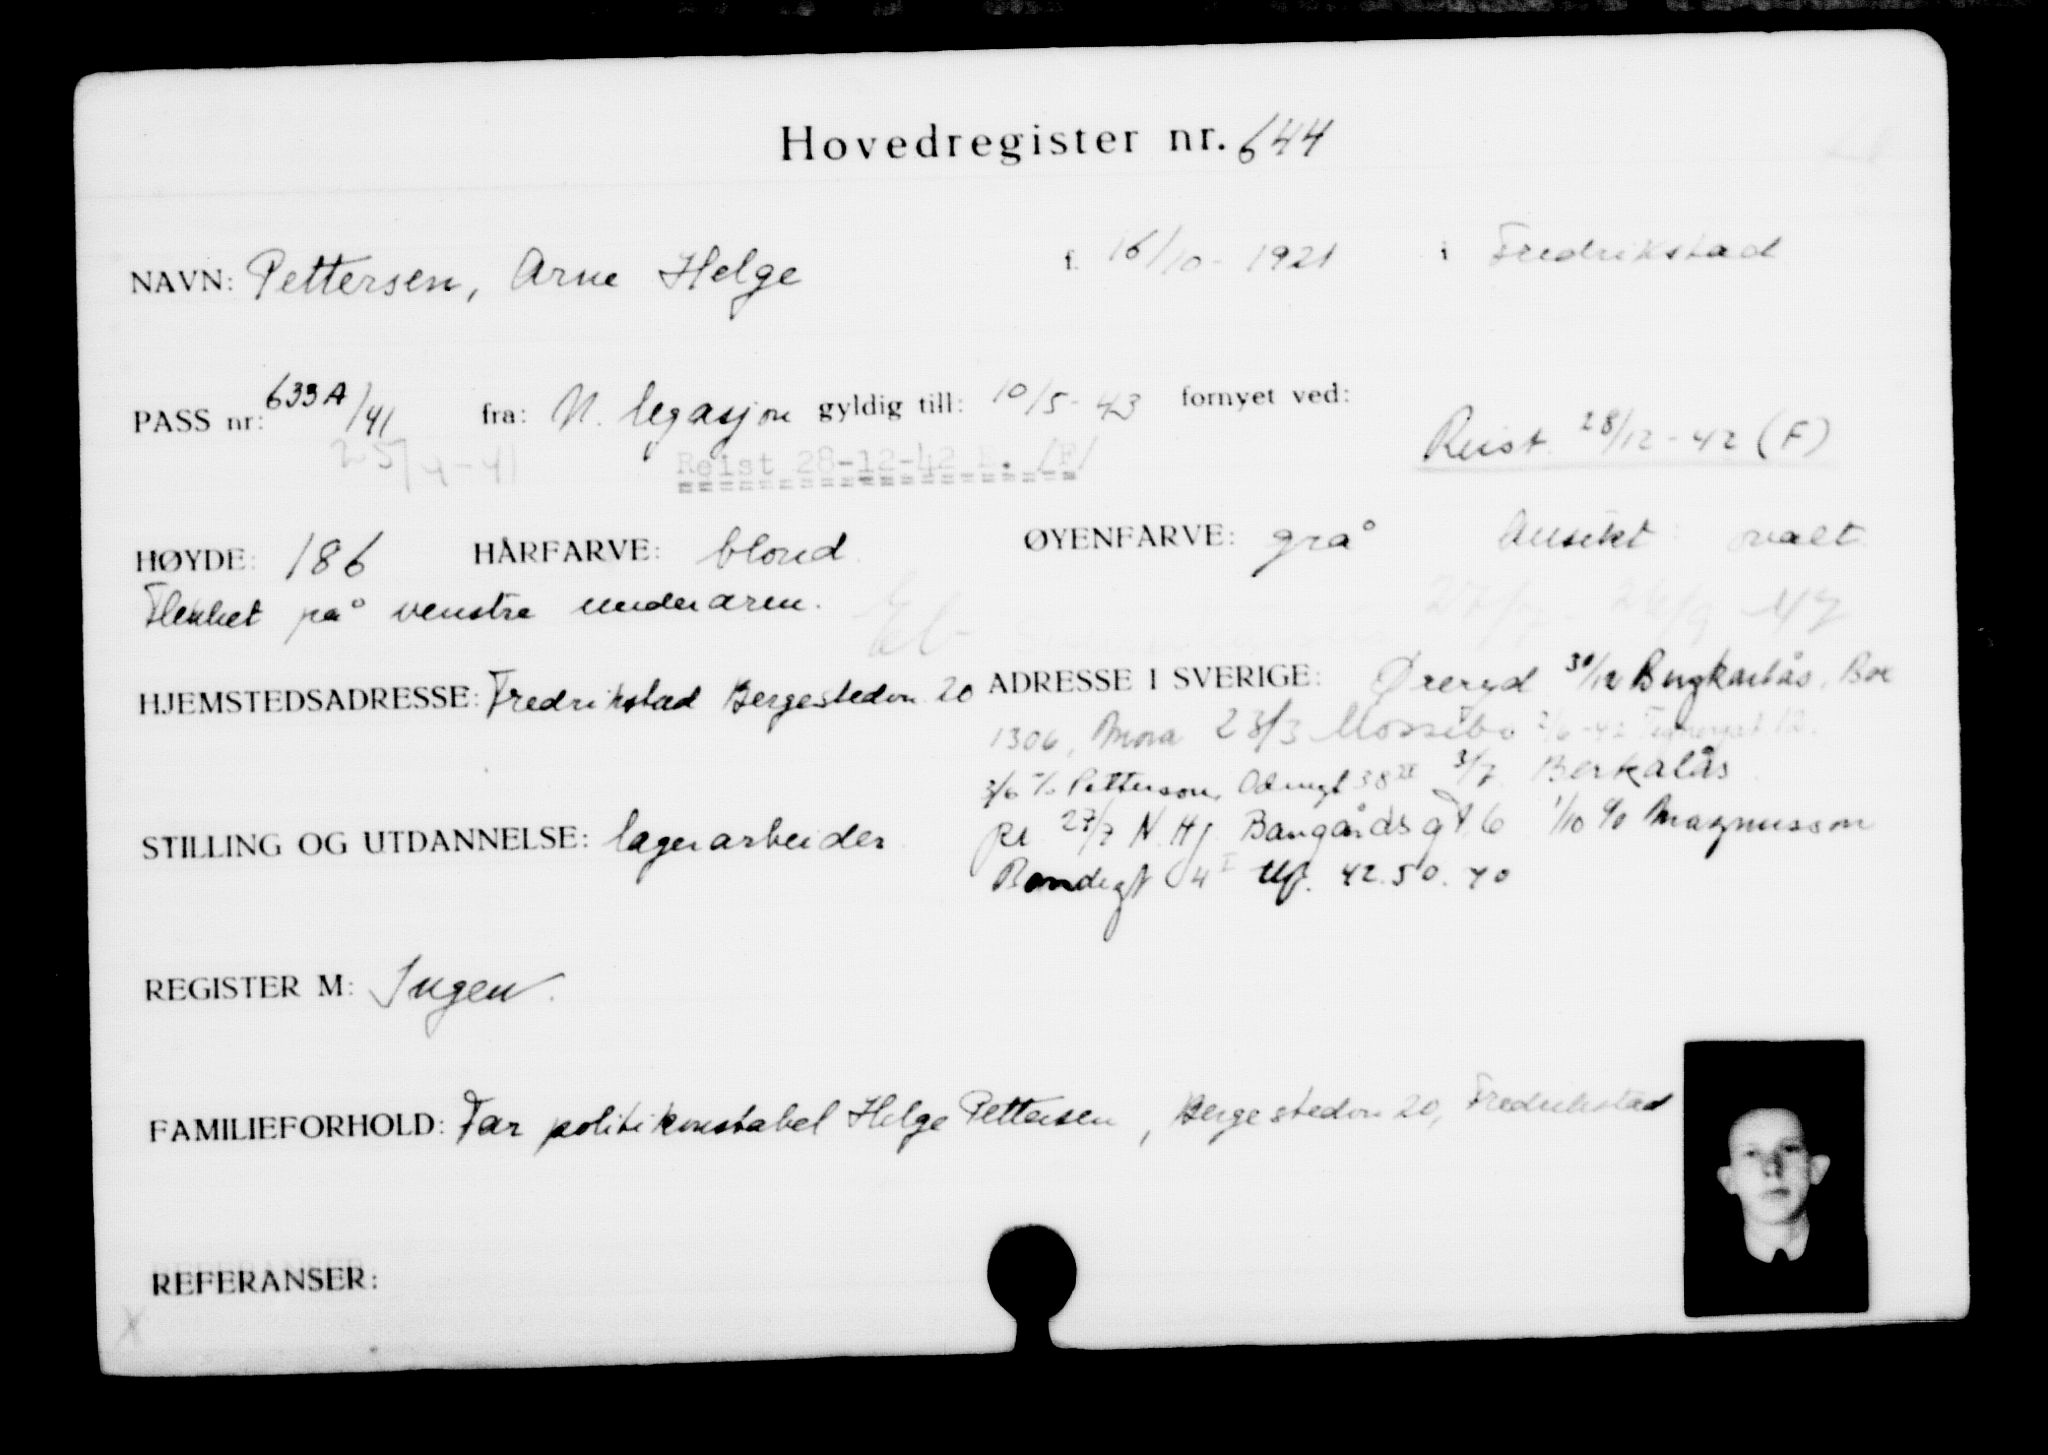 Hovedregister nr. 644
NAVN: Pettersen, Arne Helge f. 16/10 - 1921 i Fredrikstad
PASS nr: 633A/41 fra: N. legasjon gyldig till: 10/5 - 43 fornyet ved:
25/4-41 Reist 28-12-42 /F/ Reist 28/12 - 42 (F)
HØYDE: 186 HÅRFARVE: blond. ØYENFARVE: grå Ansikt: ovalt.
Flekket på venstre underarm.
HJEMSTEDSADRESSE: Fredrikstad 20 ADRESSE I SVERIGE: Øreryd 30/12 Box
1306, Mora 23/3 Mossebo 2/6-42 12.
3/6 c/o Petterson, 38 3/7 Berkalås
27/7 N. Hj. Bangårdsgt 6 1/10 c/o Magnusson
4 I tlf. 42.50.40
STILLING OG UTDANNELSE: lagerarbeider
REGISTER M: Ingen.
FAMILIEFORHOLD: Far politikonstabel Helge Pettersen, 20, Fredrikstad
REFERANSER:
X